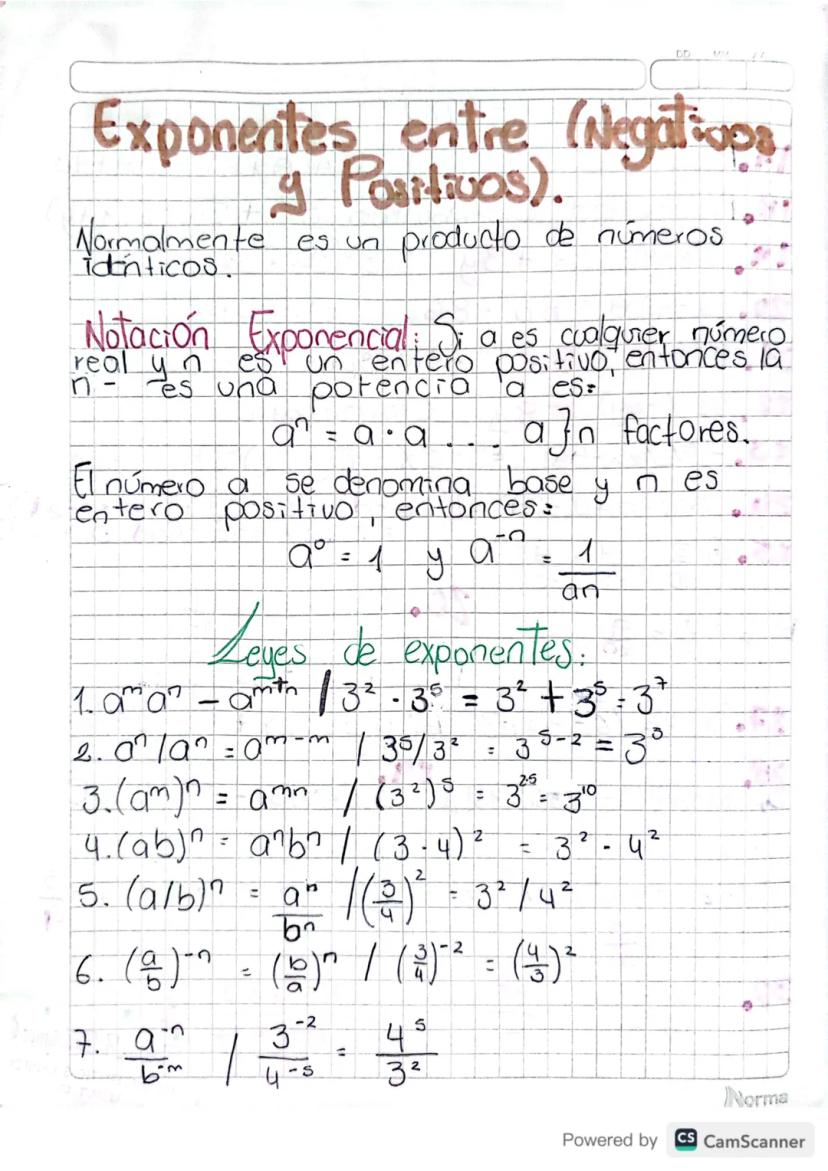 DD MM
Exponentes entre (Negativos
y Positivos).
Normalmente es un producto de números
idénticos.
Notación Exponencial: Si a es cualquier número
real y n es un entero positivo, entonces la
n - es una potencia a es:
aⁿ = a · a . . . a } n factores.
El número a se denomina base y n es
entero positivo, entonces:
a⁰ = 1 y a⁻ⁿ = 1/an
Leyes de exponentes:
1. aᵐaⁿ – aᵐ⁺ⁿ / 3² · 3⁵ = 3² + 3⁵ = 3⁷
2. aⁿ/aⁿ = aᵐ⁻ᵐ / 3⁵/3² = 3⁵⁻² = 3³
3. (aᵐ)ⁿ = aᵐⁿ / (3²)⁵ = 3²·⁵ = 3¹⁰
4. (ab)ⁿ = aⁿbⁿ / (3 · 4)² = 3² · 4²
5. (a/b)ⁿ = aⁿ/bⁿ / (3/4)² = 3² / 4²
6. (a/b)⁻ⁿ = (b/a)ⁿ / (3/4)⁻² = (4/3)²
7. a⁻ⁿ/b⁻ᵐ / 3⁻²/4⁻⁵ = 4⁵/3²
Norma
Powered by CS CamScanner